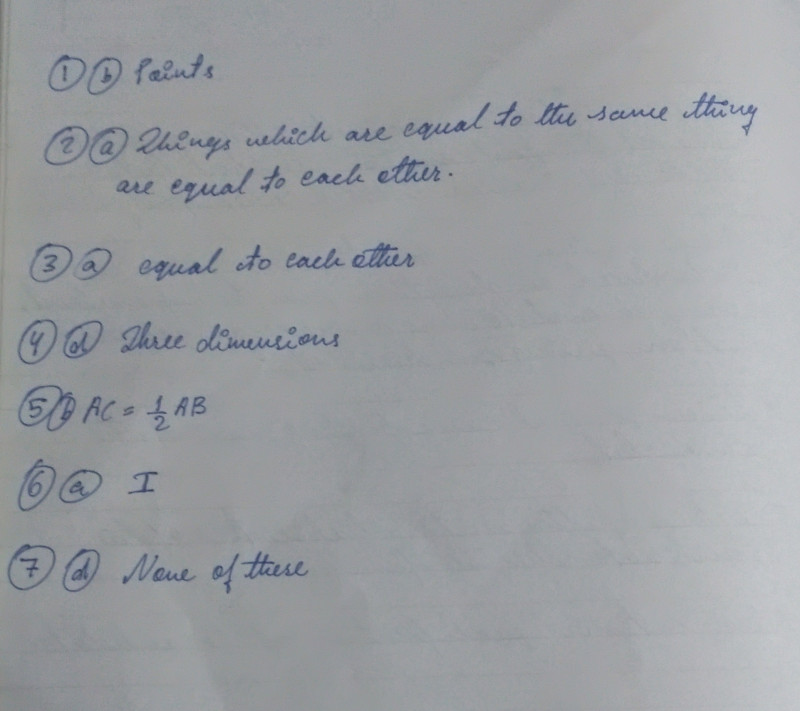 ① ⓑ Points
② ⓐ Things which are equal to the same thing
are equal to each other.
③ ⓐ equal to each other
④ ⓓ Three dimensions
⑤ ⓑ AC = 1/2 AB
⑥ ⓐ I
⑦ ⓓ None of these